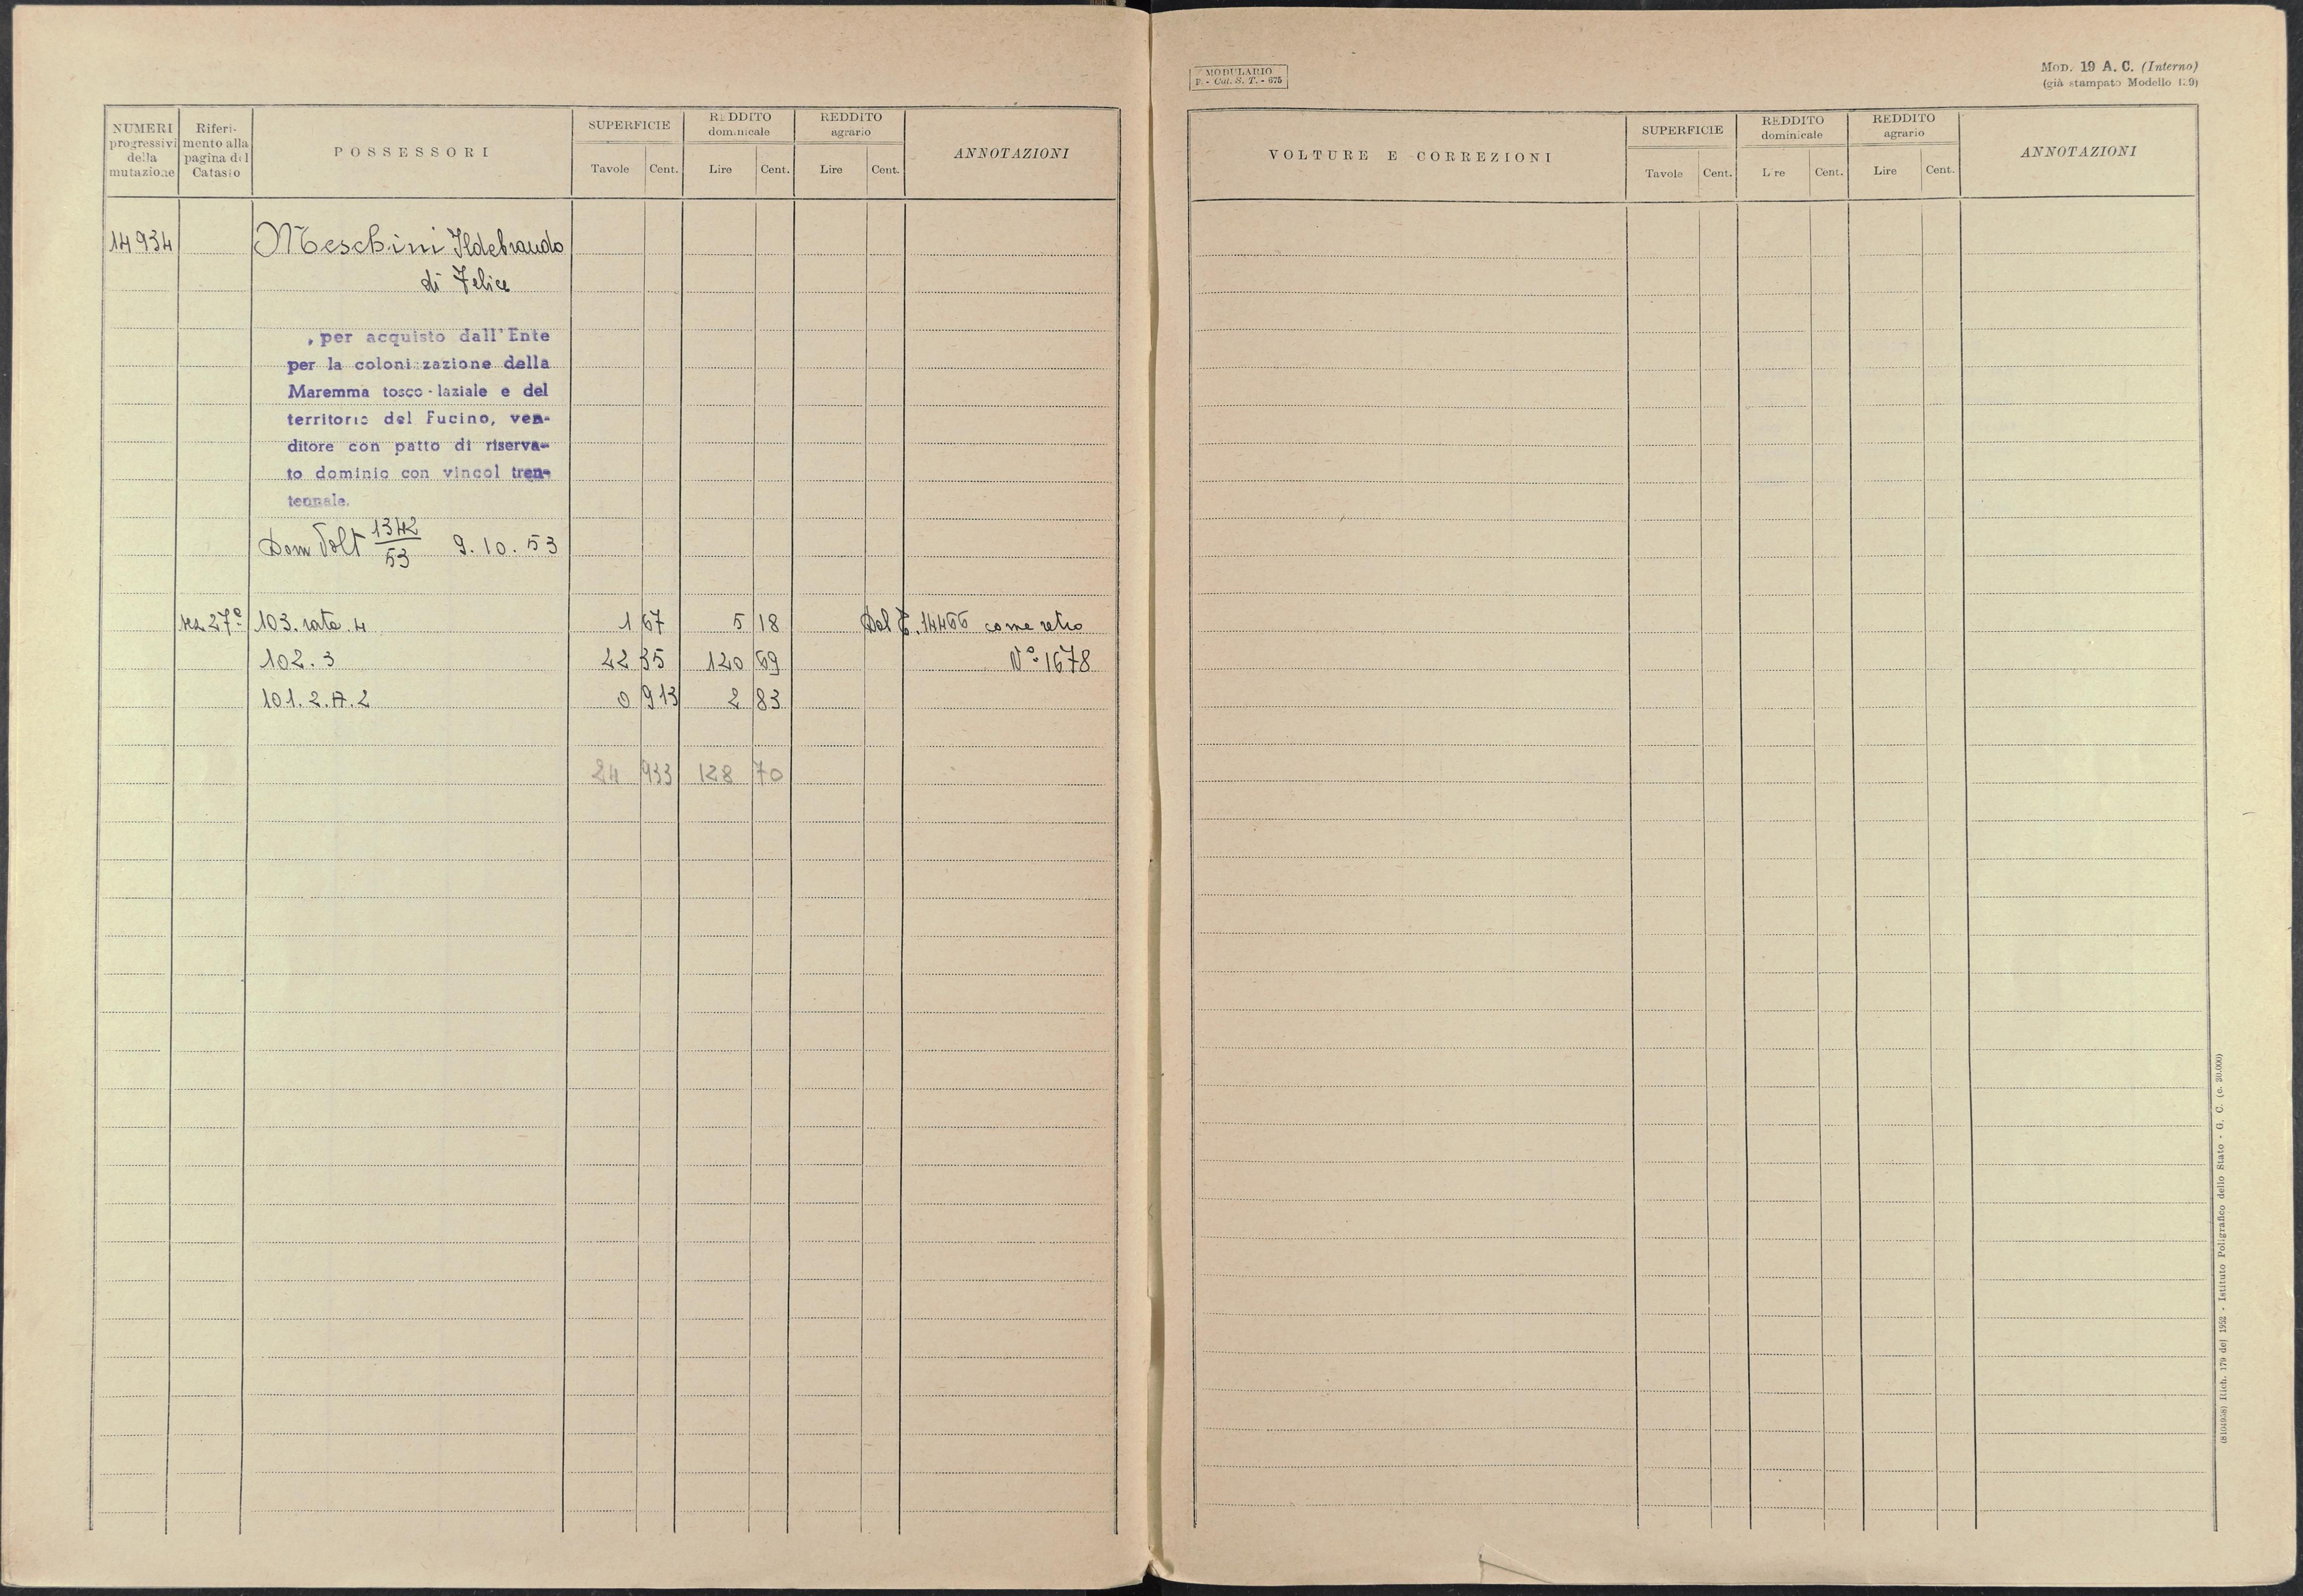 NUMERI progressivi della mutazione
Riferimento alla pagina del Catasto
POSSESSORI
SUPERFICIE
Tavole Cent.
REDDITO dominicale
Lire Cent.
REDDITO agrario
Lire Cent.
ANNOTAZIONI
14934 Meschini Ildebrando
di Felice
, per acquisto dall'Ente
per la colonizzazione della
Maremma tosco-laziale e del
territorio del Fucino, ven-
ditore con patto di riserva-
to dominio con vincol tren-
tennale.
Dom Volt 1342/53 9.10.53
sez 27ª 103. rata. 4 1 67 5 18 Dal 14466 come retro
102. 3 22 35 120 69 N° 1678
101. 2. A. 2 0 913 2 83
24 933 128 70
MODULARIO
F. - Cat. S. T. - 675
MOD. 19 A. C. (Interno)
(già stampato Modello 129)
VOLTURE E CORREZIONI
SUPERFICIE
Tavole Cent.
REDDITO dominicale
L re Cent.
REDDITO agrario
Lire Cent.
ANNOTAZIONI
Rich. 179 del 1952 - Istituto Poligrafico dello Stato - G. C. (c. 30.000)